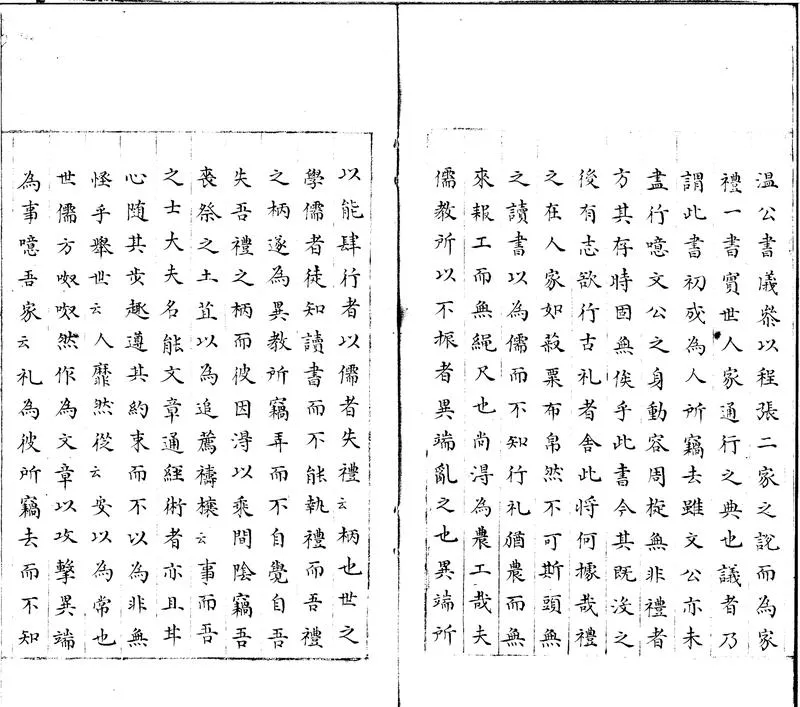 温公書儀叅以程張二家之說而為家
禮一書實世人家通行之典也議者乃
謂此書初成為人所竊去雖文公亦未
盡行噫文公之身動容周旋無非禮者
方其存時固無俟乎此書今其既沒之
後有志欲行古礼者舍此將何據哉禮
之在人家如菽粟布帛然不可斯頭無
之讀書以為儒而不知行礼猶農而無
來報工而無繩尺也尚淂為農工哉夫
儒教所以不振者異端亂之也異端所
以能肆行者以儒者失禮云柄也世之
學儒者徒知讀書而不能執禮而吾禮
之柄遂為異教所竊弄而不自覺自吾
失吾禮之柄而彼因淂以乘間陰竊吾
喪祭之土苴以為追薦禱禳云事而吾
之士大夫名能文章通經術者亦且甘
心随其步趣遵其約束而不以為非無
怪乎舉世云人靡然從云安以為常也
世儒方呶呶然作為文章以攻擊異端
為事噫吾家云礼為彼所竊去而不知